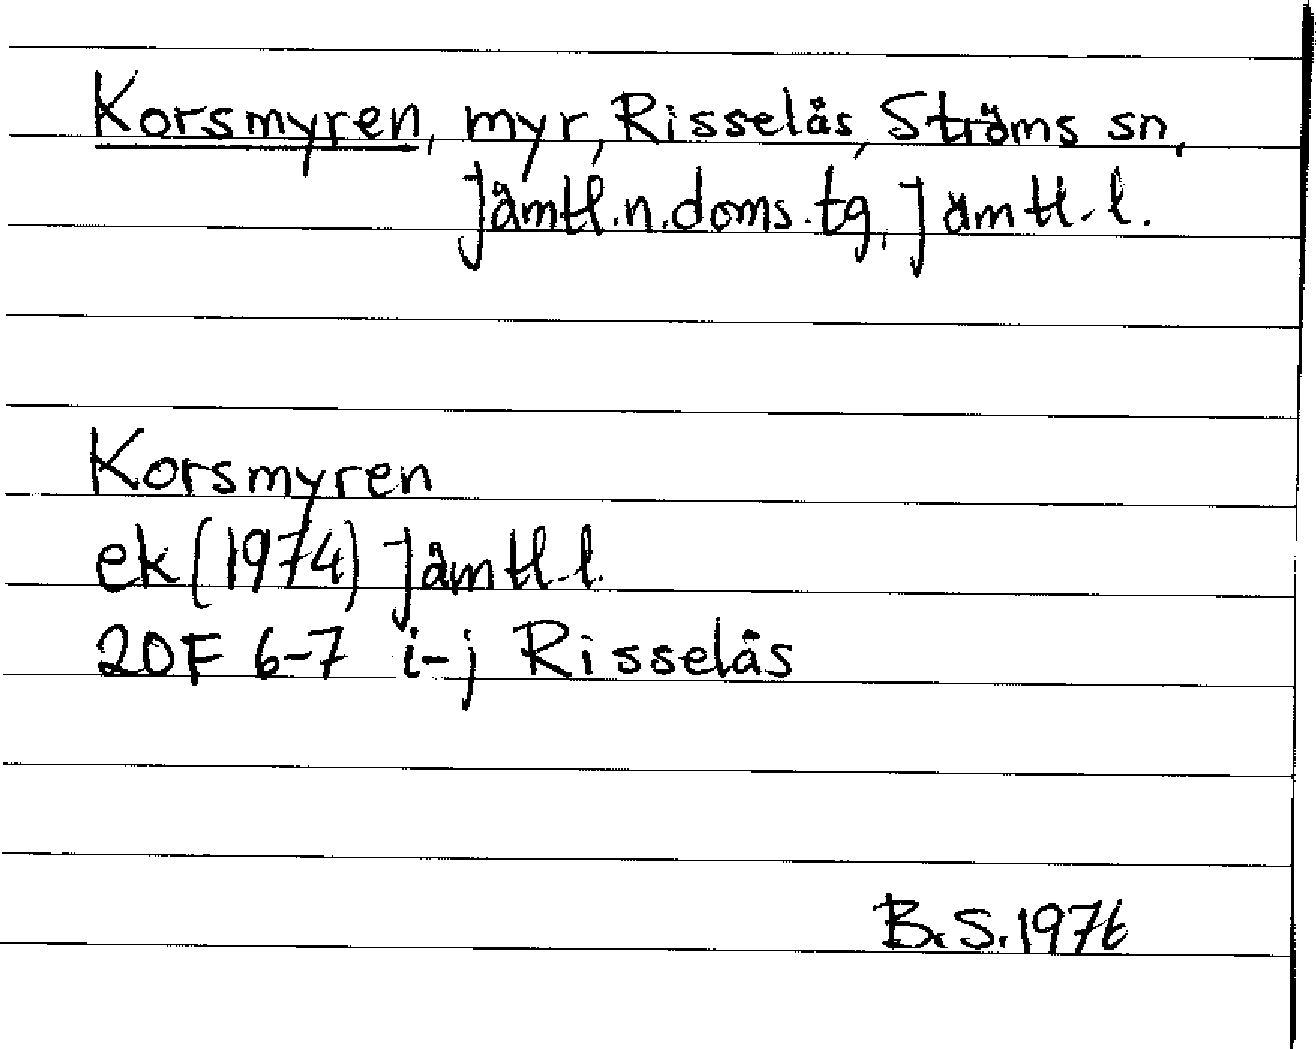 Korsmyren, myr, Risselås, Ströms sn,
Jämtl.n.doms.tg, Jämtl.l.
Korsmyren
ek (1974) Jämtl.l.
20F 6-7 i-j Risselås
B.S. 1976